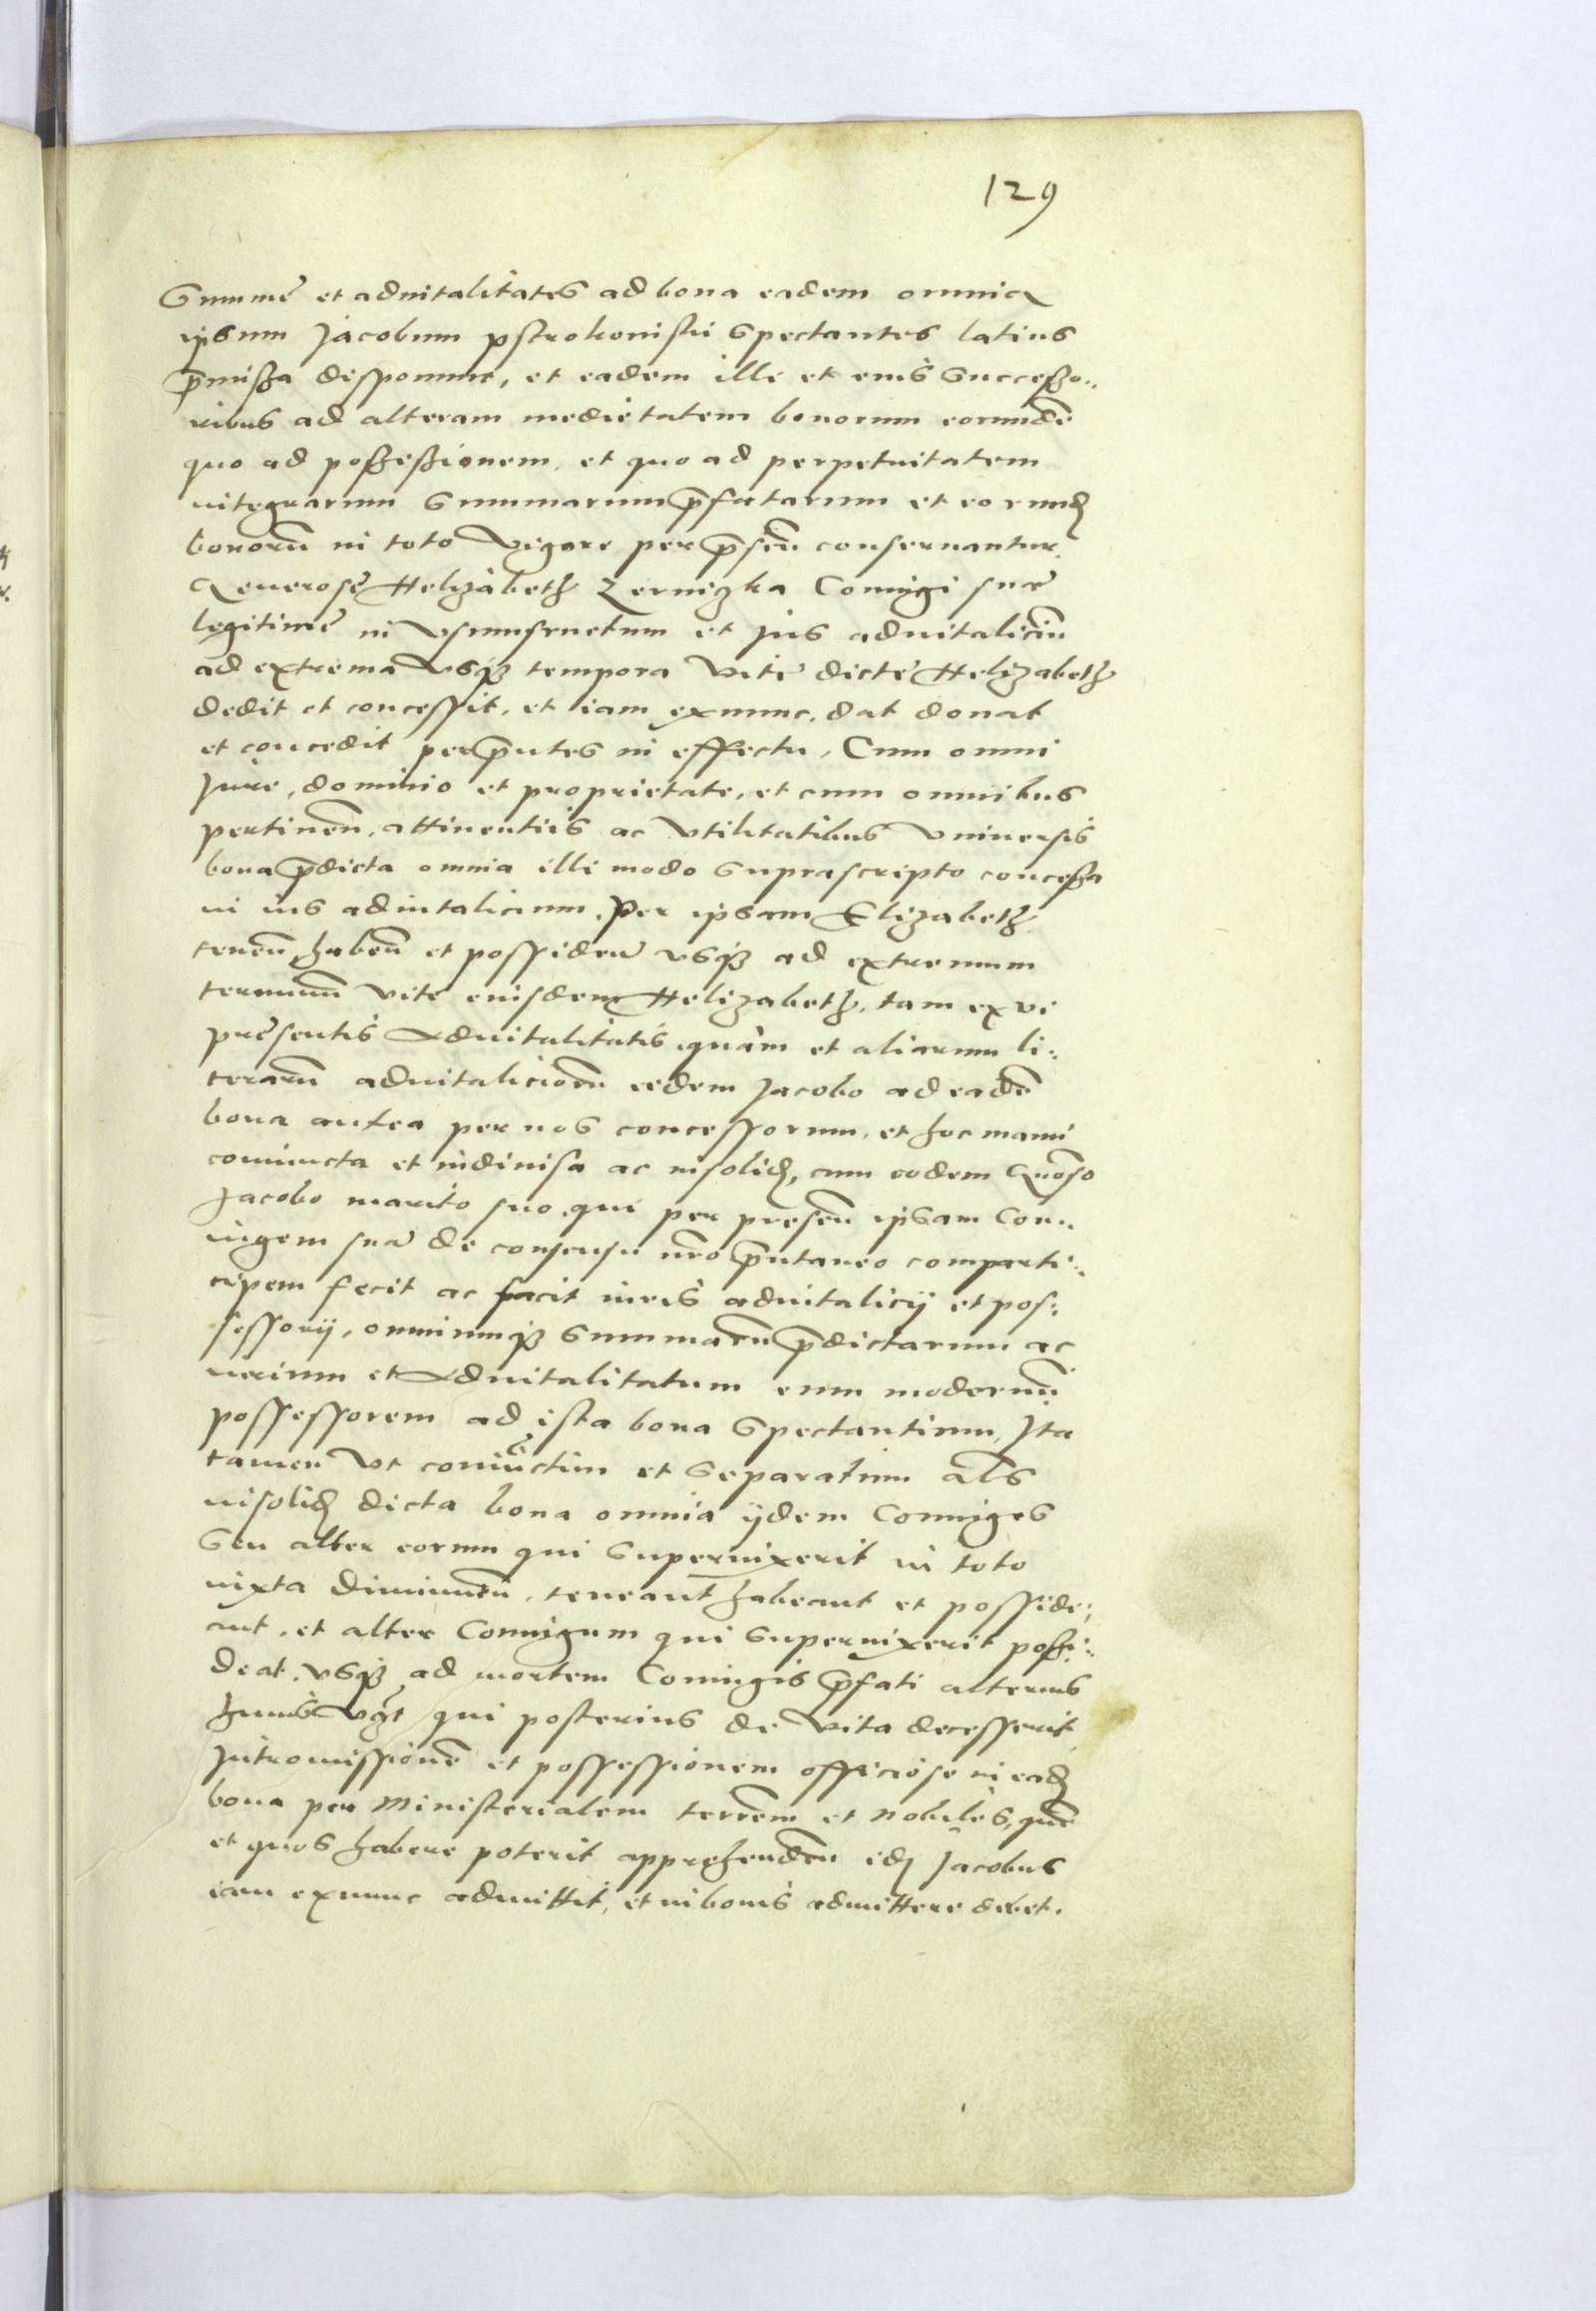 129
Summę et aduitalitates ad bona eadem omnia
ipsum Jacobum pstrokonisski spectantes latius
p̄missa disponunt, et eadem illi et eius successo„
ribus ad alteram medietatem bonorum eorundē
quo ad possessionem, et quo ad perpetuitatem
integrarum summarum p̄fatarum et eorund
bonorū in toto vigore per p̄sen̄ conseruantur.
Generosę Helizabeth Zerniczka Coniugi suę
legitimę in vsumfructum et jus aduitaliciū
ad extrema vsq3 tempora vitę dictę Helizabeth
dedit et concessit, et iam exnunc, dat donat
et concedit per p̄ntes in effectu, Cum omni
Jure, dominio et proprietate, et cum omnibus
pertinen̄, attinentiis ac vtilitatibus vniuersis
bona p̄dicta omnia illi modo suprascripto concessa
in ius aduitalicium, Per ipsam Elizabeth
tenen̄, haben̄ et possiden̄ vsq3 ad extremum
terminū vitę eiusdem Helizabeth, tam ex vi
pręsentis Aduitalitatis, quàm et aliarum li„
terarū aduitaliciarū eidem Jacobo ad eadē
bona antea per nos concessorum, et hoc manu
coniuncta et indiuisa ac insolid, cum eodem Gnōso
Jacobo marito suo, qui per presen̄ ipsam Con„
iugem suā de consensu nr̄o p̄ntaneo comparti„
cipem fecit ac facit iuris aduitalicij et pos„
sessorij, omniumq3 summarū p̄dictarum ac
iurium et Aduitalitatum eum modernū
possessorem ad ista bona spectantium, Ita
tamen vt coniūctim et separatim al̄s
insolid dicta bona omnia ijdem Coniuges
seu alter eorum qui superuixerit in toto
iuxta diuinuen̄, teneant habeant et posside„
ant, et alter Coniugum qui superuixerit possi„
deat, vsq3 ad mortem Coniugis p̄fati alterius
huius vr̄ qui posterius de vita decesserit,
Intromissionē et possessionem officiose in ead
bona per Ministerialem terrēm et Nobiles, quē
et quos habere poterit apprehenden̄ id Jacobus
iam exnunc admittit, et in bonis admittere debet.